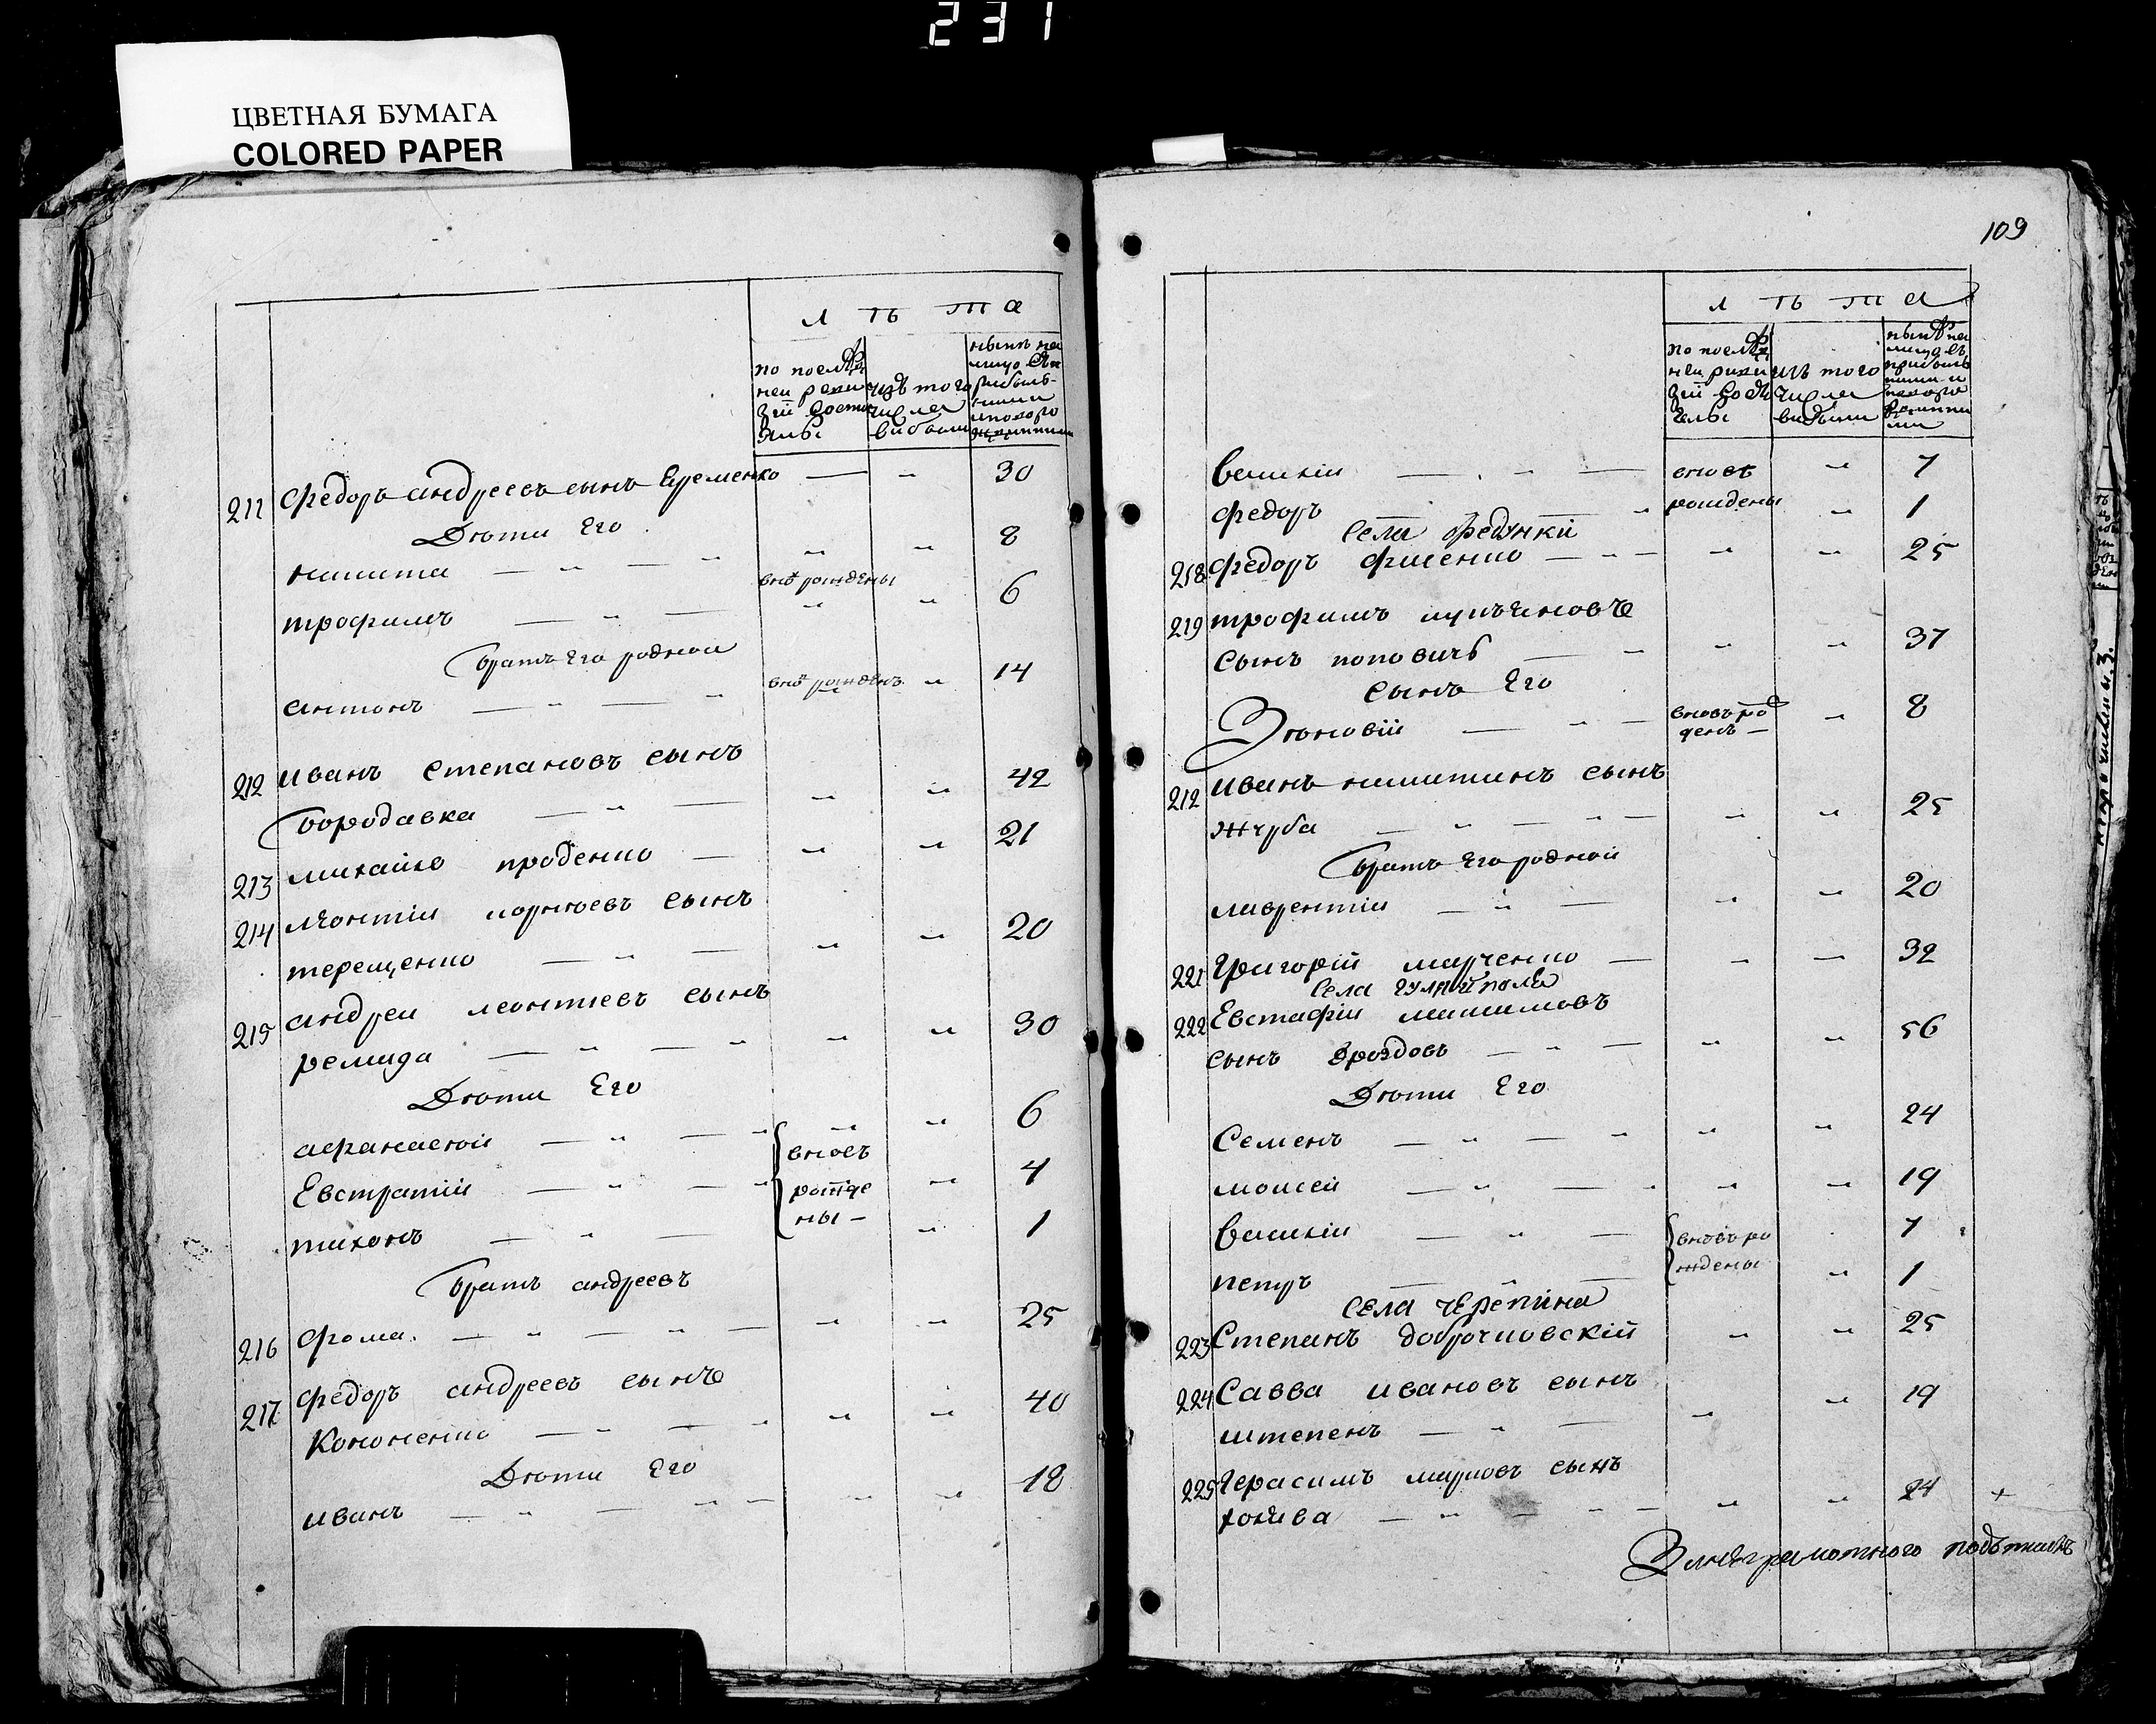 231
ЦВЕТНАЯ БУМАГА
COLORED PAPER
Л Ѣ Т А
по послѣд
ней реви
зіи состо
яльı
изъ того
числа
выбыли
нынѣ на
лицо съ
211 Федоръ андреевъ сынъ Еременко — „ 30
Дѣти Его
никита — „ — „ „ „ 8
внов рождены
трофимъ — „ — „ „ 6
братъ Его родной
антонъ — „ — „ внов рожденъ „ 14
212 иванъ степановъ сынъ
бородавка — „ — „ „ 42
213 михайло проценко — „ „ 21
214 леонтіи корнѣевъ сынъ
терещенко — „ — „ „ 20
215 андреи леонтіевъ сынъ
ремида — „ — „ „ „ 30
Дѣти Его
афанасеюй — „ — „ „ „ 6
Евстратій — „ — „ вновъ „ 4
рожде
ны —
тихонъ — „ — „ 1
братъ андреевъ
216 фома. — „ — „ — „ „ 25
217 федоръ андреевъ сынъ
Кононенко — „ — „ „ „ 40
Дѣти Его
иванъ — „ — „ — „ „ 18
109
Л Ѣ Т А
по послѣд
ней реви
зіи состо
яльı
изъ того
числа
выбыли
нынѣ на
лицо съ
прибыль
ными и
василіи — „ — вновъ „ 7
федоръ — „ рождены „ 1
села федунки
218 федоръ фисенко — „ — „ „ 25
219 трофимъ
сынъ поповичъ — „ „ „ 37
сынъ Его
Зѣновій — „ — вновъ рож „ 8
денъ —
212 иванъ никитинъ сынъ
жура — „ — „ — „ „ 25
братъ Его родной
лаврентіи — „ — „ „ 20
221 Григорій марченко — „ — 32
села гуляйполя
222 Евстафіи максимовъ
сынъ дроздовъ — „ — „ „ 56
Дѣти Его
Семенъ — „ — „ „ „ 24
моисей — „ — „ „ „ 19
василіи — „ — вновъ ро 7
петръ — „ — ждены „ 1
села черепина
223 Степанъ „ „ 25
224 Савва ивановъ сынъ
штепенъ — „ — „ „ 19
225 Герасимъ марковъ сынъ
— „ — „ — „ „ 24 +